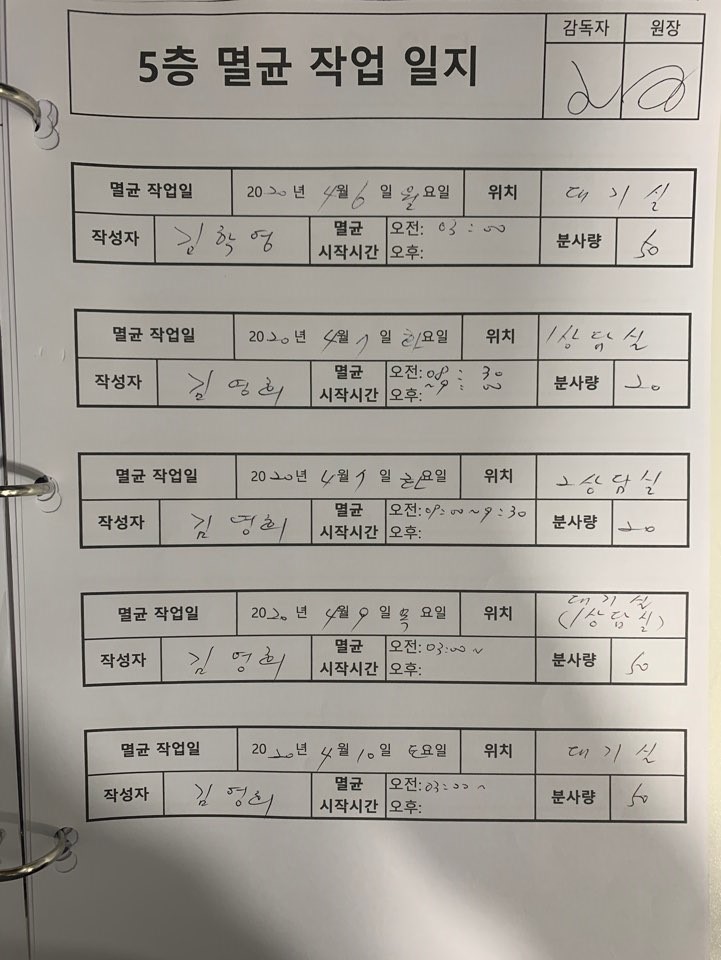 5층 멸균 작업 일지
감독자 원장
멸균 작업일 2020년 4월 6일 월요일 위치 대기실
작성자 김학영 멸균 시작시간 오전: 03:00 분사량 50
오후:
멸균 작업일 2020년 4월 7일 화요일 위치 1상담실
작성자 김영희 멸균 시작시간 오전: 08:30 분사량 20
오후: ~9:00
멸균 작업일 2020년 4월 7일 화요일 위치 2상담실
작성자 김영희 멸균 시작시간 오전: 09:00~9:30 분사량 20
오후:
멸균 작업일 2020년 4월 9일 목요일 위치 대기실
(1상담실)
작성자 김영희 멸균 시작시간 오전: 03:00~ 분사량 50
오후:
멸균 작업일 2020년 4월 10일 토요일 위치 대기실
작성자 김영희 멸균 시작시간 오전: 03:00~ 분사량 50
오후: